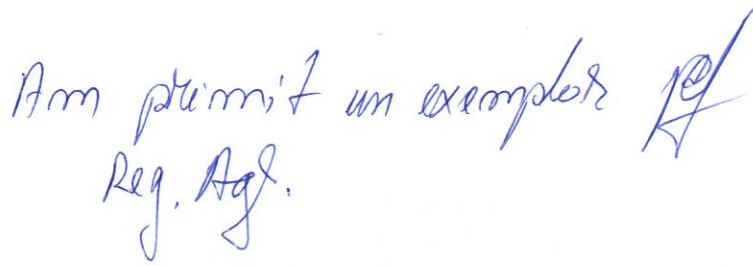 Am primit un exemplar
Reg. Agl.